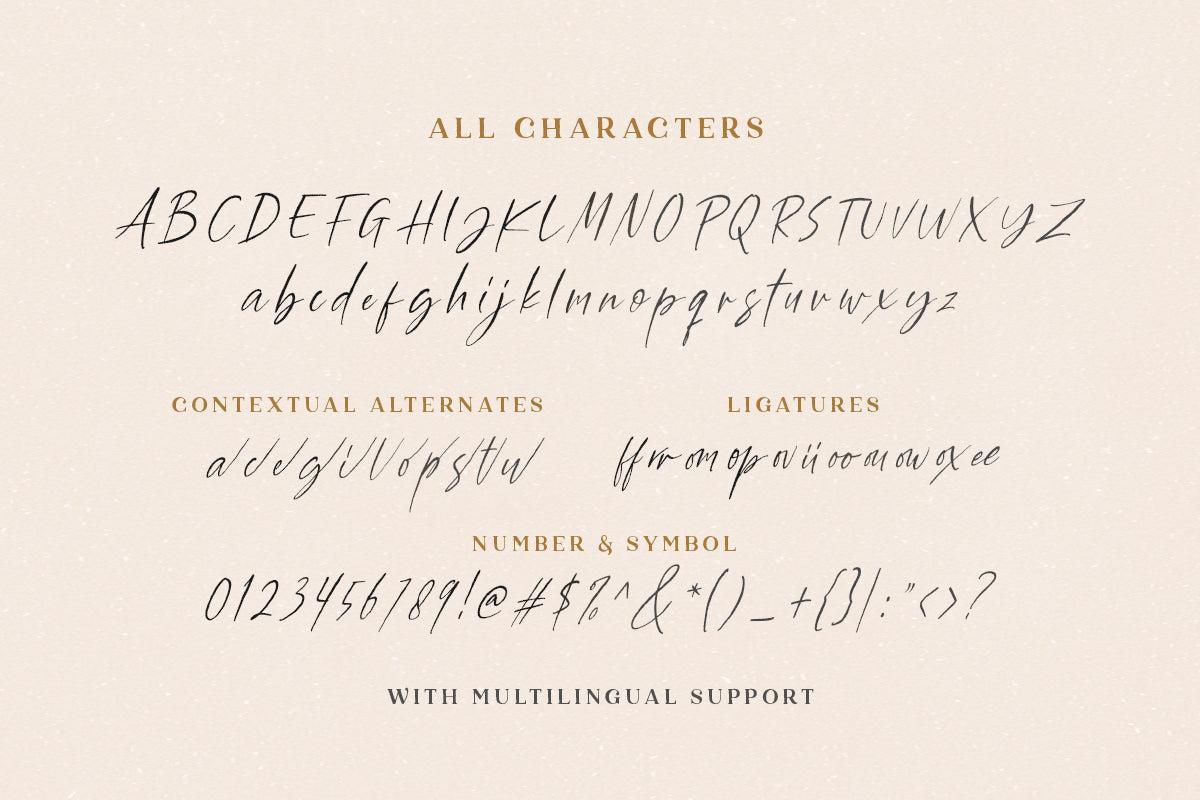 ALL CHARACTERS
ABCDEFGHIJKLMNOPQRSTUVWXYZ
abcdefghijklmnopqrstuvwxyz
CONTEXTUAL ALTERNATES
a c d e g i l l o p s t u
LIGATURES
ff rr om op ov ii oo ou ow ox ee
NUMBER & SYMBOL
0123456789!@#$%^&*()_+{}|:"<>?
WITH MULTILINGUAL SUPPORT